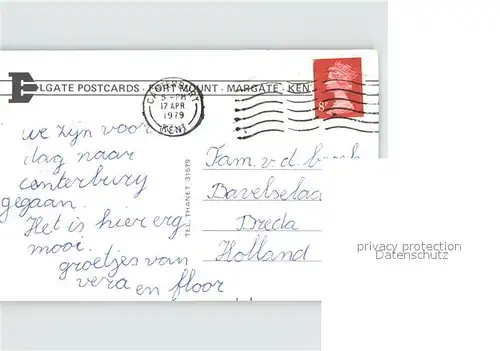 ELGATE POSTCARDS · FORT MOUNT · MARGATE · KEN
CANTERBURY
5 - PM
17 APR
1979
KENT
8P
we zijn voor
dag naar
canterbury
gegaan.
Het is hier erg
mooi.
groetjes van
vera en floor
TEL. THANET 31579
Fam. v. d.
Davelselaa
Breda
Holland
privacy protection
Datenschutz